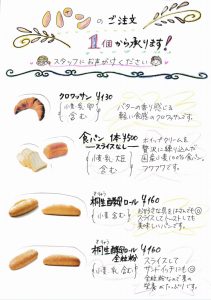 パンのご注文
1個から承ります!
スタッフにお声がけください
クロワッサン ¥130
(小麦,乳,卵含む)
バターの香り感じる
軽い食感のクロワッサンです。
食パン 1本 ¥500
スライスなし
(小麦,乳含む)
ホイップクリームを
贅沢に練り込んだ
国産小麦100%食パン。
フワフワです。
桐生酵母ロール ¥160
(小麦含む)
お好きな具をはさんでも◎
スライスしてトーストしても
美味しいです。
桐生酵母ロール
全粒粉 ¥160
(小麦含む)
スライスして
サンドイッチにも◎
全粒粉なので麦の
栄養がたっぷりです。